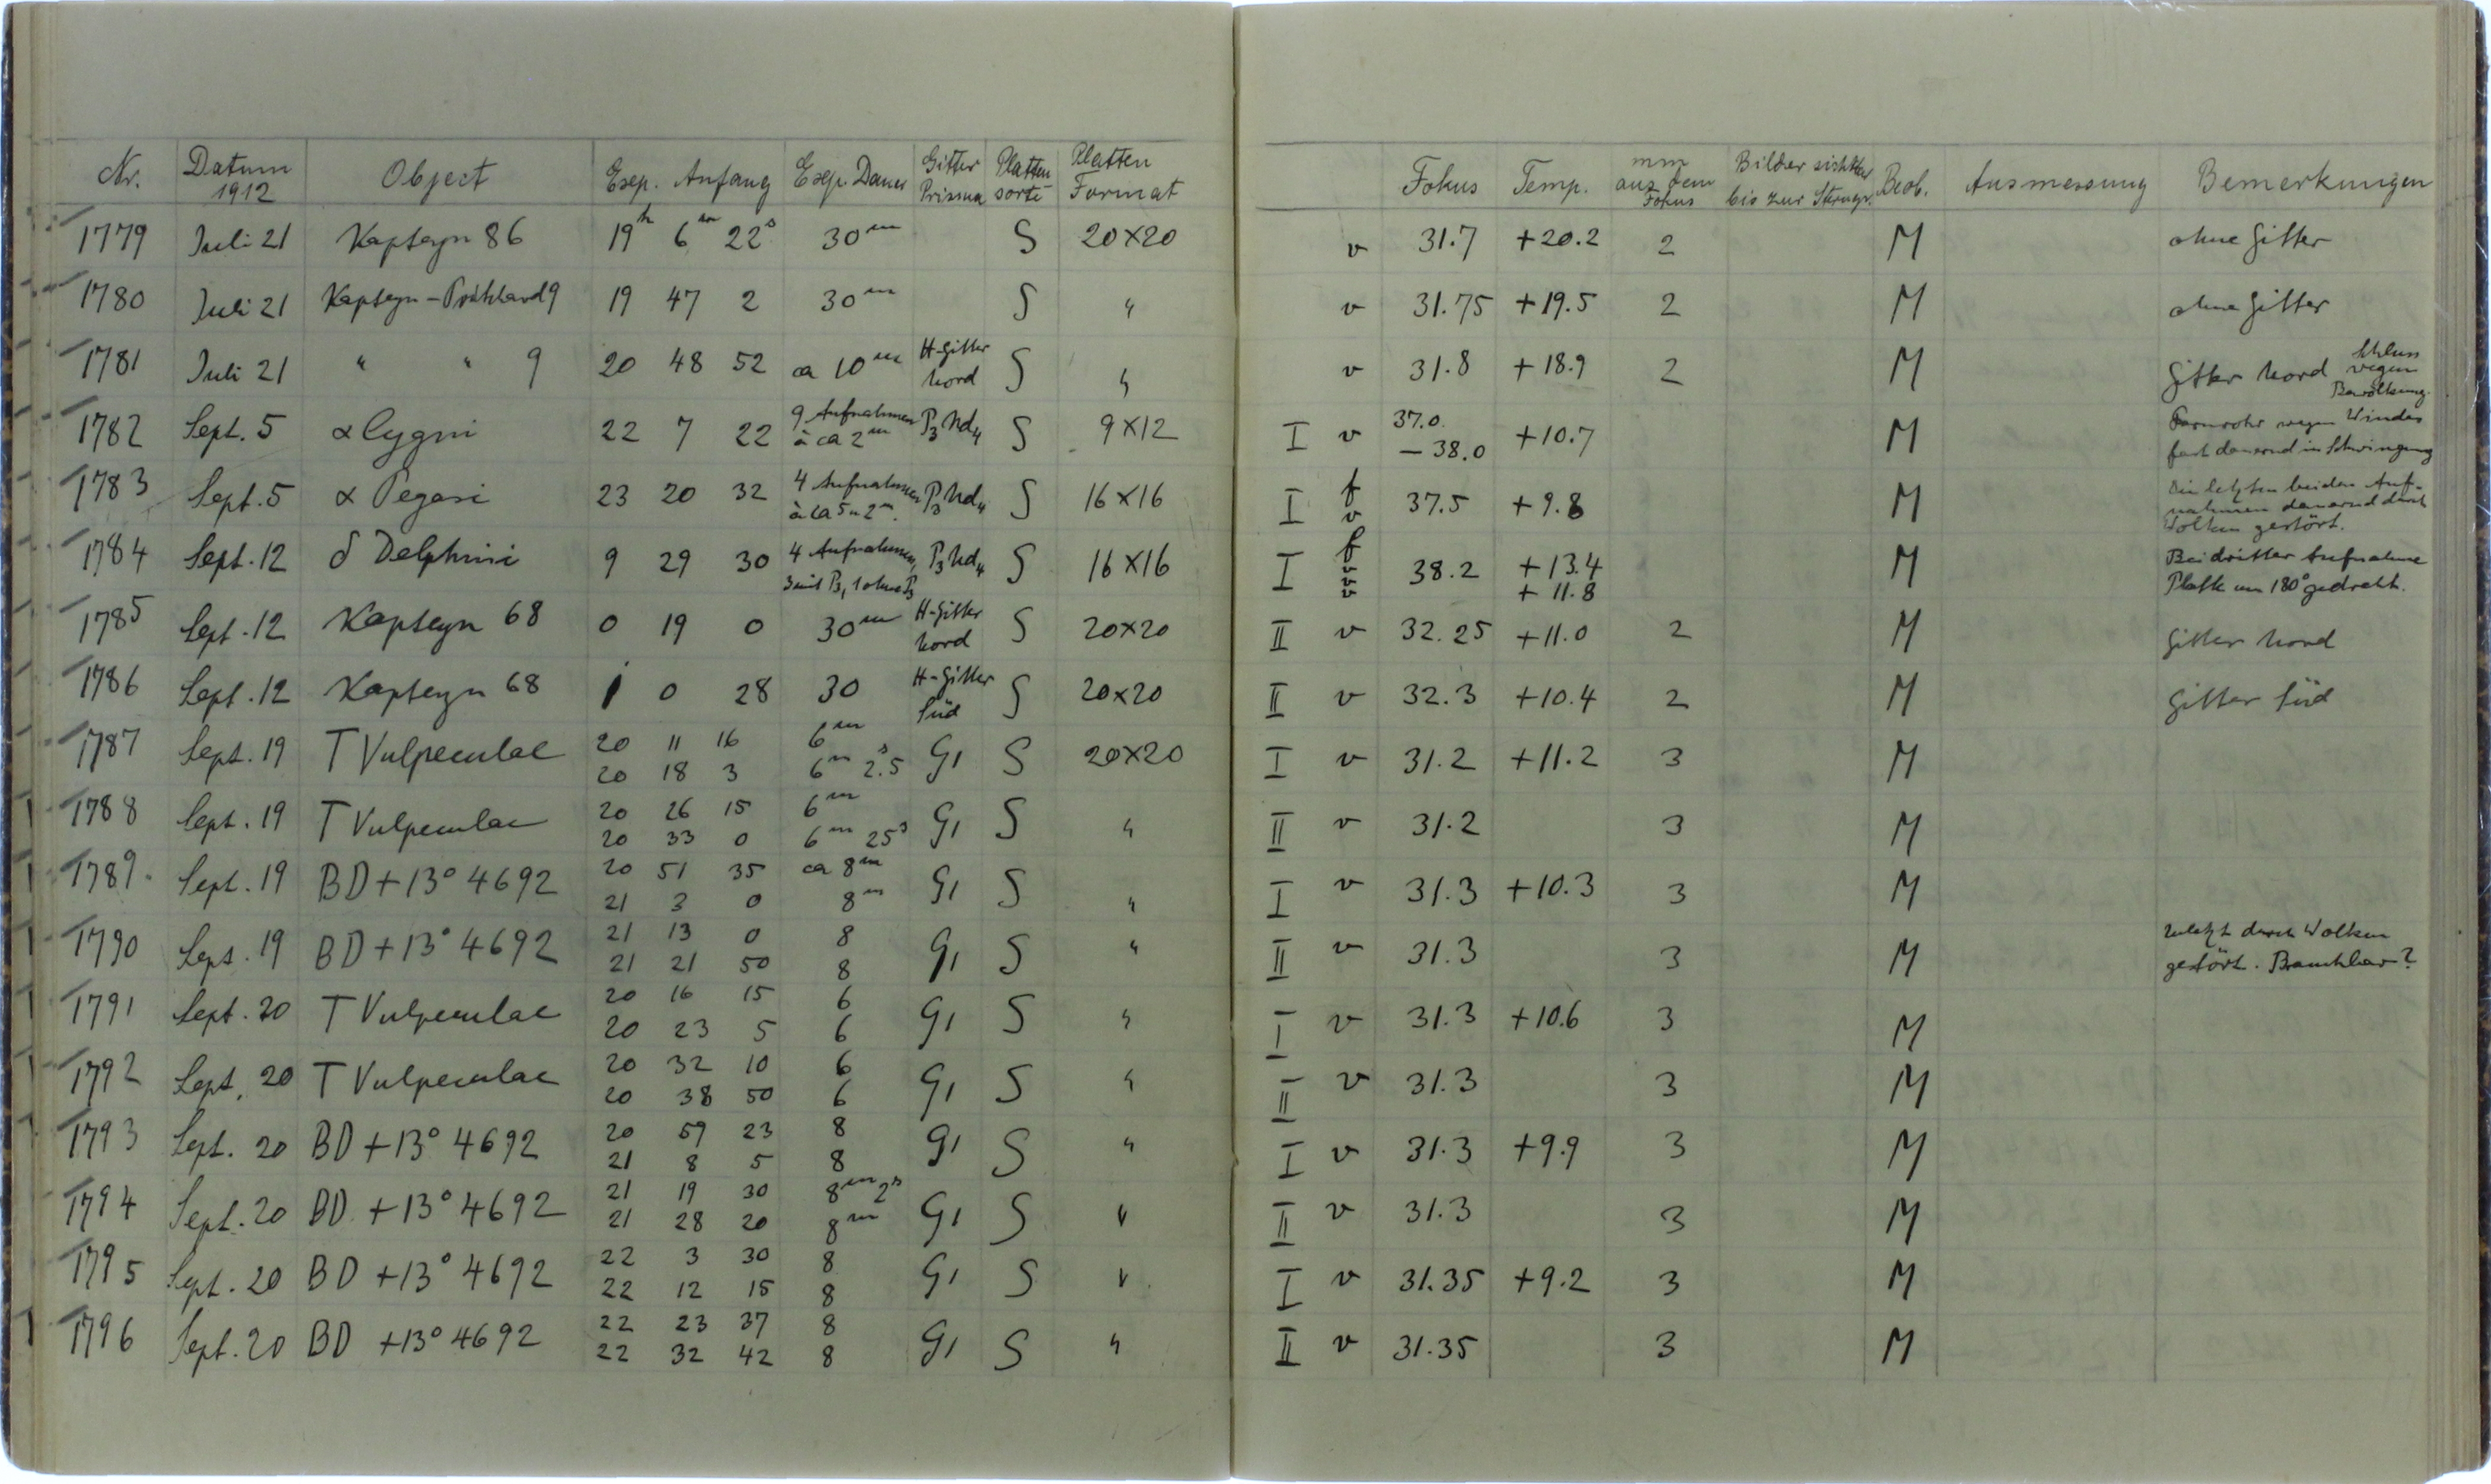 Nr. Datum 1912 Object Exp. Anfang Exp. Dauer Gitter Prisma Platten sorte Platten Format Fokus Temp. mm aus dem Fokus Bilder sichtbar bis zur Sterngr. Beob. Ausmessung Bemerkungen
1779 Juli 21 Kapteyn 86 19h 6m 22s 30m S 20×20 v 31.7 +20.2 2 M ohne Gitter
1780 Juli 21 Kapteyn - 9 19 47 2 30m S " v 31.75 +19.5 2 M ohne Gitter
1781 Juli 21 " " 9 20 48 52 ca 10m H-Gitter Nord S " v 31.8 +18.9 2 M Gitter Nord Schluss wegen Bewölkung.
1782 Sept. 5 α Cygni 22 7 22 9 Aufnahmen à ca 2m P3 Nd4 S 9×12 I v 37.0 – 38.0 +10.7 M Fernrohr wegen Windes fast dauernd in Schwingung
1783 Sept. 5 α Pegasi 23 20 32 4 Aufnahmen à ca 5 u 2m. P3 Nd4 S 16×16 I f v 37.5 +9.8 M Die letzten beiden Aufnahmen dauernd durch Wolken gestört.
1784 Sept. 12 δ Delphini 9 29 30 4 Aufnahmen, 3 mit P3, 1 ohne P3 P3 Nd4 S 16×16 I f v v v 38.2 +13.4 +11.8 M Bei dritter Aufnahme Platte um 180° gedreht.
1785 Sept. 12 Kapteyn 68 0 19 0 30m H-Gitter Nord S 20×20 II v 32.25 +11.0 2 M Gitter Nord
1786 Sept. 12 Kapteyn 68 1 0 28 30 H-Gitter Süd S 20×20 II v 32.3 +10.4 2 M Gitter Süd
1787 Sept. 19 T Vulpeculae 20 11 16 6m G1 S 20×20 I v 31.2 +11.2 3 M
20 18 3 6m 2.5s
1788 Sept. 19 T Vulpeculae 20 26 15 6m G1 S " II v 31.2 3 M
20 33 0 6m 25s
1789. Sept. 19 BD+13° 4692 20 51 35 ca 8m G1 S " I v 31.3 +10.3 3 M
21 3 0 8m
1790 Sept. 19 BD+13° 4692 21 13 0 8 G1 S " II v 31.3 3 M Zuletzt durch Wolken
21 21 50 8 gestört. Brauchbar?
1791 Sept. 20 T Vulpeculae 20 16 15 6 G1 S " I v 31.3 +10.6 3 M
20 23 5 6
1792 Sept. 20 T Vulpeculae 20 32 10 6 G1 S " II v 31.3 3 M
20 38 50 6
1793 Sept. 20 BD +13° 4692 20 59 23 8 G1 S " I v 31.3 +9.9 3 M
21 8 5 8
1794 Sept. 20 BD +13° 4692 21 19 30 8m 2s G1 S " II v 31.3 3 M
21 28 20 8m
1795 Sept. 20 BD +13° 4692 22 3 30 8 G1 S " I v 31.35 +9.2 3 M
22 12 15 8
1796 Sept. 20 BD +13° 4692 22 23 37 8 G1 S " II v 31.35 3 M
22 32 42 8